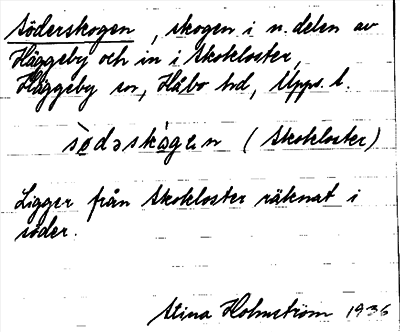 Söderskogen, skogen i n. delen av
Häggeby och in i Skokloster,
Häggeby sn, Håbo hd, Upps. l.
sö̀dəskàgen (Skokloster)
Ligger från Skokloster räknat i
söder.
Stina Holmström 1936